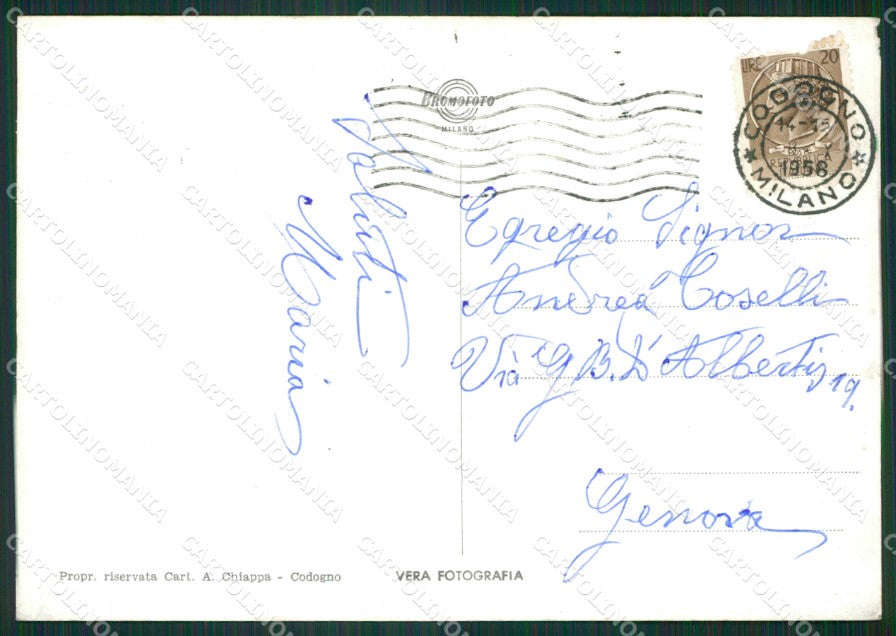 BROMOFOTO
MILANO
LIRE 20
CODOGNO
1958
MILANO
Saluti
Maria
Egregio Signor
Andrea Toselli
Via G.B. D'Albertis 19.
Genova
Propr. riservata Cart. A. Chiappa - Codogno
VERA FOTOGRAFIA
CARTOLINOMANIA